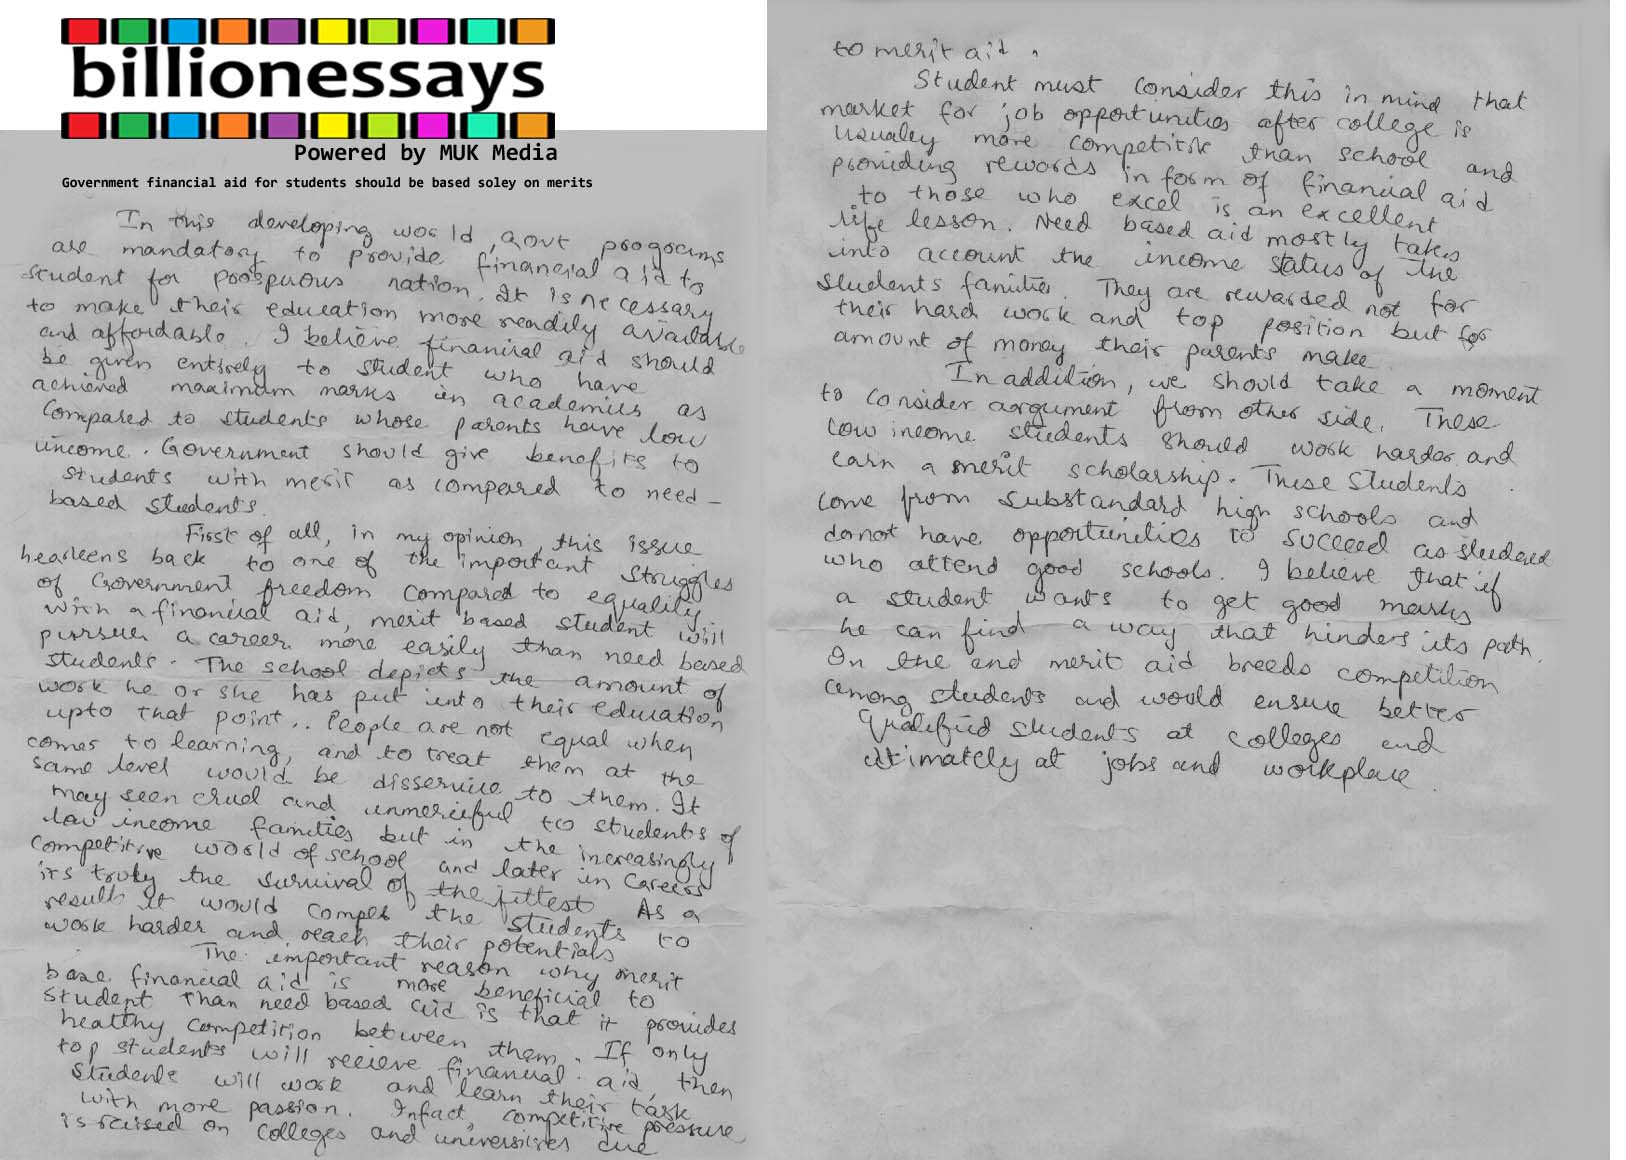 billionessays
Powered by MUK Media
Government financial aid for students should be based soley on merits
In this developing world, govt programs
are mandatory to provide financial aid to
student for prosperous nation. It is necessary
to make their education more readily available
and affordable. I believe financial aid should
be given entirely to student who have
achieved maximum marks in academics as
compared to students whose parents have low
income. Government should give benefits to
students with merit as compared to need-
based students.
First of all, in my opinion, this issue
hearleens back to one of the important struggles
of Government freedom compared to equality.
With a financial aid, merit based student will
pursue a career more easily than need based
students. The school depicts the amount of
work he or she has put into their education
upto that point.. People are not equal when
comes to learning, and to treat them at the
same level would be disservice to them. It
may seen cruel and unmerciful to students of
low income families but in the increasingly
competitive world of school and later in careers
its truly the survival of the fittest As a
result it would compel the students to
work harder and reach their potentials
The important reason why merit
base financial aid is more beneficial to
student than need based aid is that it provides
healthy competition between them. If only
top students will recieve financial aid, then
students will work and learn their task
with more passion. Infact, competitive pressure
is raised on colleges and universities due
to merit aid.
Student must consider this in mind that
market for job opportunities after college is
usualey more competitive than school and
providing rewords in form of financial aid
to those who excel is an excellent
life lesson. Need based aid mostly takes
into account the income status of the
students families. They are rewarded not for
their hard work and top position but for
amount of money their parents make
In addition, we should take a moment
to consider argument from other side. These
low income students should work harder and
earn a merit scholarship. These students
come from substandard high schools and
donot have opportunities to succeed as student
who attend good schools. I believe that if
a student wants to get good marks
he can find a way that hinders its path.
In the end merit aid breeds competition
among students and would ensure better
qualified students at colleges and
ultimately at jobs and workplace.